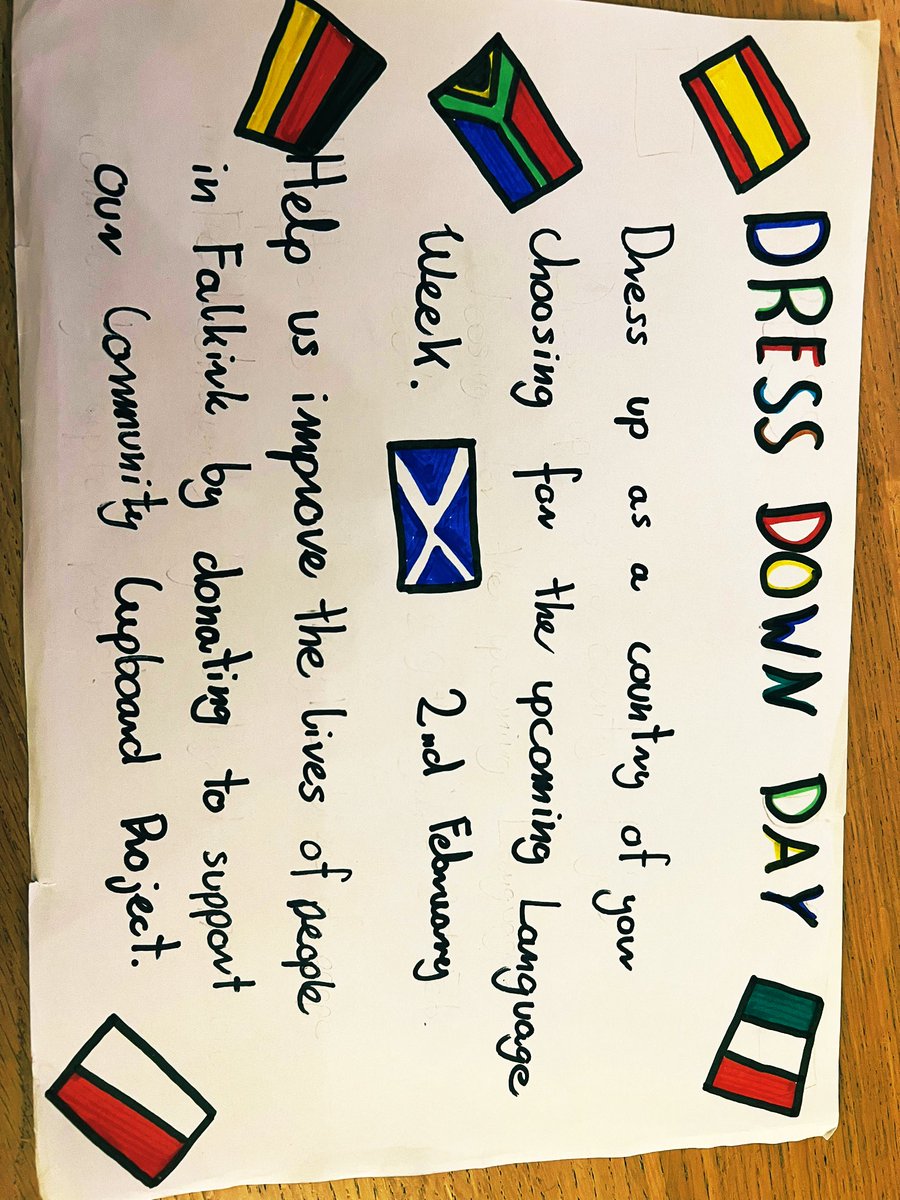 DRESS DOWN DAY
Dress up as a country of your
choosing for the upcoming Language
Week. 2nd February
Help us improve the lives of people
in Falkirk by donating to support
our Community Cupboard Project.